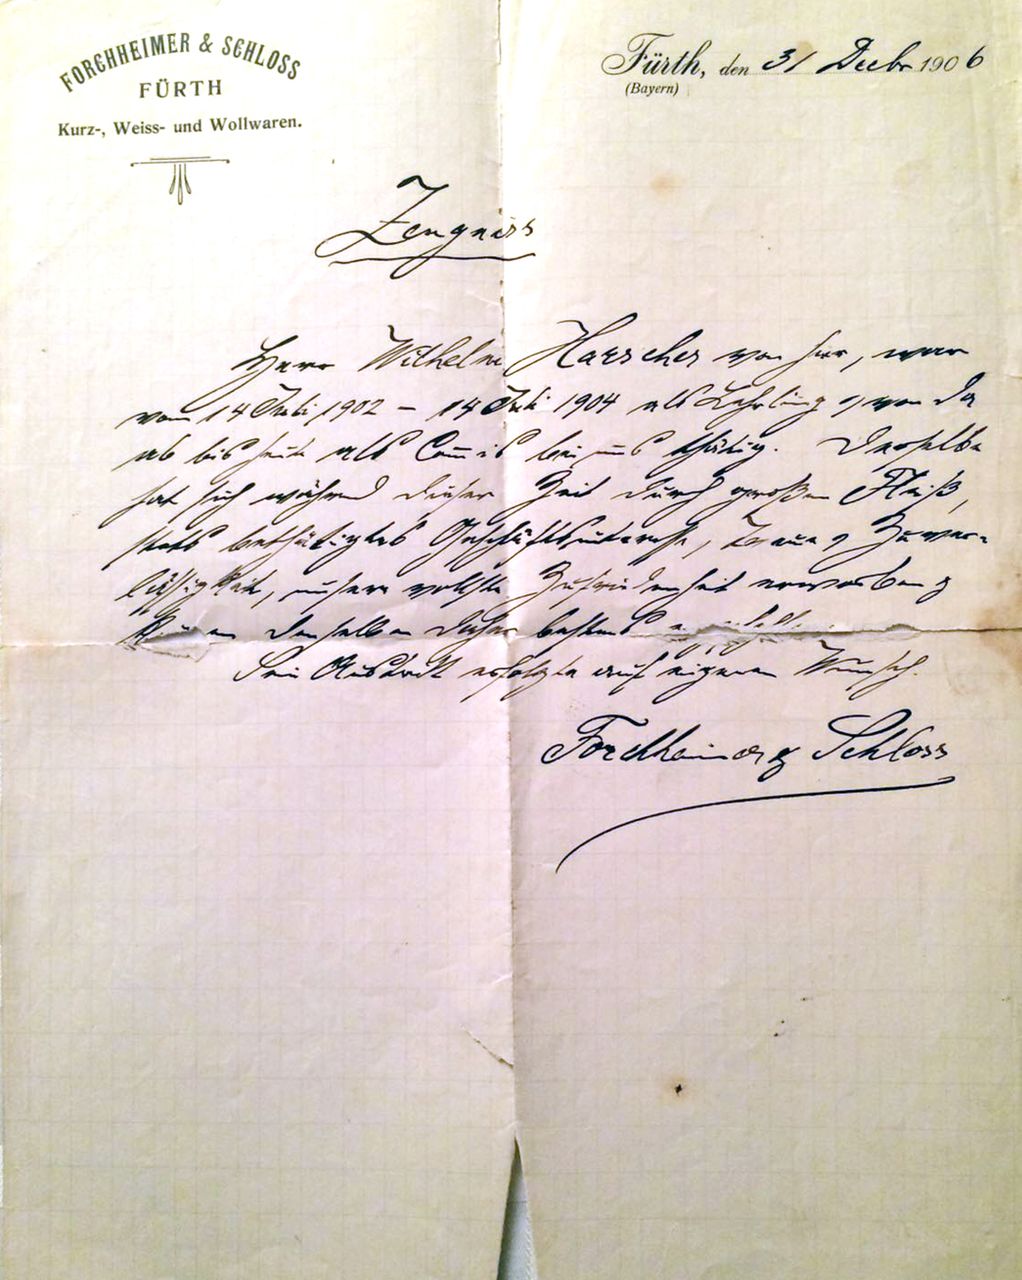 FORCHHEIMER & SCHLOSS
FÜRTH
Kurz-, Weiss- und Wollwaren.
Fürth, den 31 Decbr. 1906
(Bayern)
Zeugniss
Herr Wilhelm von hier, war
vom 14 Juli 1902 – 14 Juli 1904 als Lehrling & von da
ab bis heute als Commis bei uns thätig. Derselbe
hat sich während dieser Zeit durch großen Fleiß,
stets bethätigtes Geschäftsinteresse, Treue & Zuver-
lässigkeit, unsere vollste Zufriedenheit erworben &
können denselben daher bestens empfehlen.
Sein Austritt erfolgte auf eigenen Wunsch.
Forchheimer & Schloss